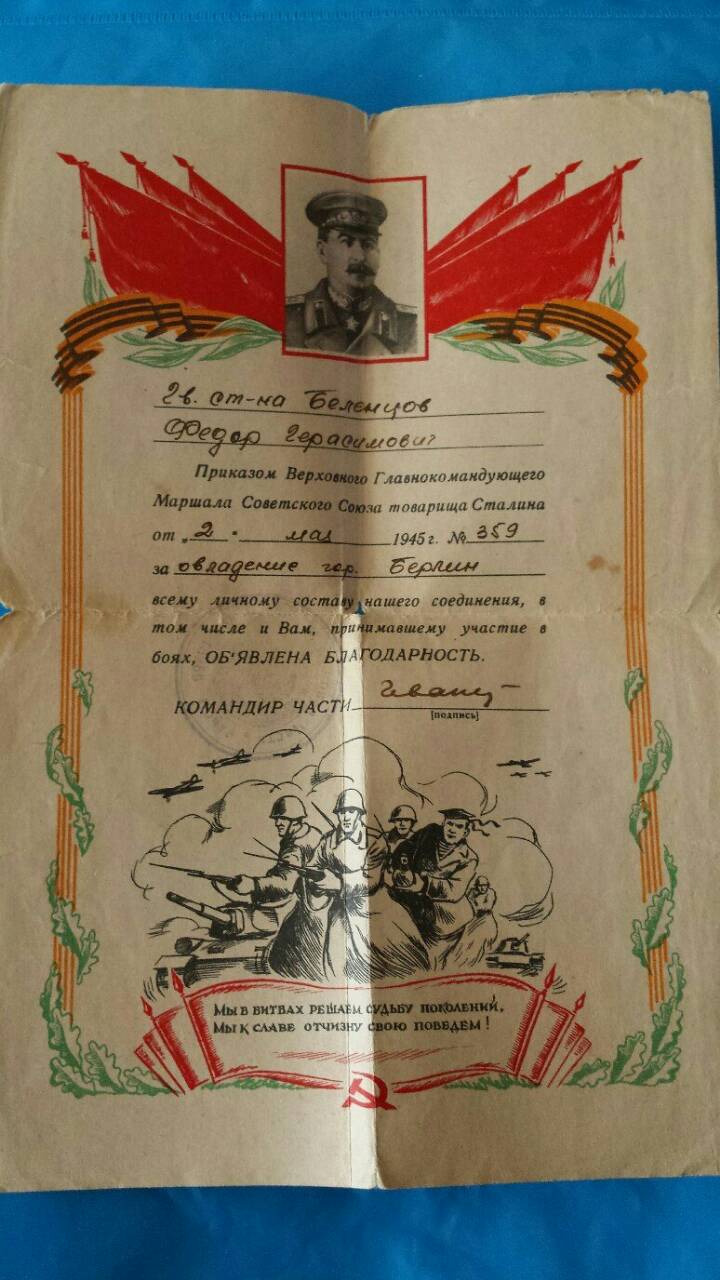 Гв. ст-на Беленцов
Федор Герасимович
Приказом Верховного Главнокомандующего
Маршала Советского Союза товарища Сталина
от „2 " мая 1945 г. № 359
за овладение гор. Берлин
всему личному составу нашего соединения, в
том числе и Вам, принимавшему участие в
боях, ОБ'ЯВЛЕНА БЛАГОДАРНОСТЬ.
КОМАНДИР ЧАСТИ
[подпись]
МЫ В БИТВАХ РЕШАЕМ СУДЬБУ ПОКОЛЕНИЙ,
МЫ К СЛАВЕ ОТЧИЗНУ СВОЮ ПОВЕДЕМ!